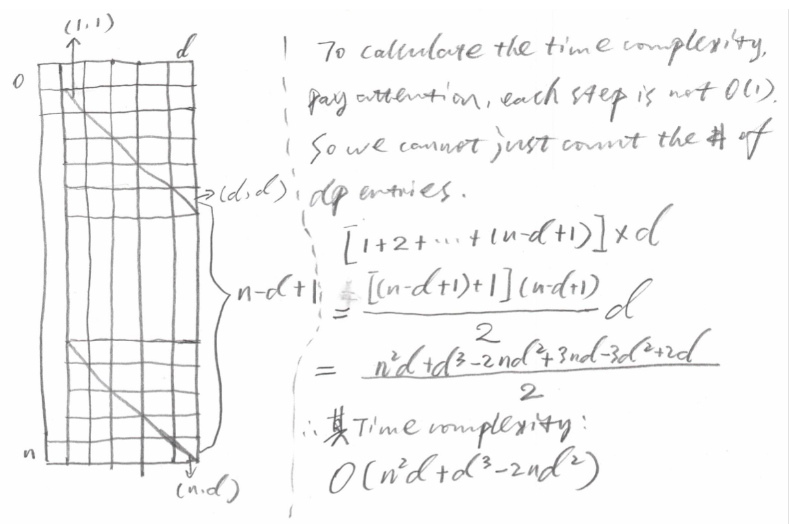 (1,1)
d
0
→(d,d)
n-d+1
n
(n,d)
To calculate the time complexity,
pay attention, each step is not O(1).
So we cannot just count the # of
dp entries.
[1+2+⋯+(n-d+1)]×d
= [(n-d+1)+1](n-d+1)/2 d
= n²d+d³-2nd²+3nd-3d²+2d/2
∴其Time complexity:
O(n²d+d³-2nd²)